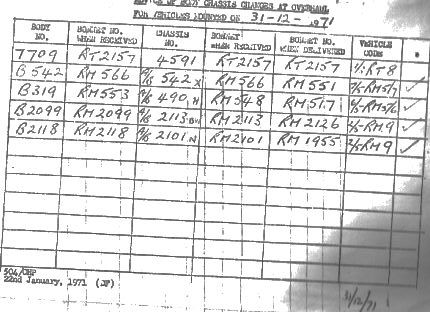 ADVICE OF BODY CHASSIS CHANGES AT OVERHAUL
FOR VEHICLES LICENSED ON 31-12-1971
BODY NO. BONNET NO. WHEN RECEIVED CHASSIS NO. BONNET WHEN RECEIVED BONNET NO. WHEN DELIVERED VEHICLE CODE
7709 RT2157 4591 RT2157 RT2157 RT8
B542 RM566 542 RM566 RM551 RM5/7 ✓
B319 RM553 490 RM548 RM517 RM5/6 ✓
B2099 RM2099 2113 RM2113 RM2126 RM9 ✓
B2118 RM2118 2101 RM2101 RM1955 RM9 ✓
504/OHP
22nd January, 1971 (JF)
31/12/71